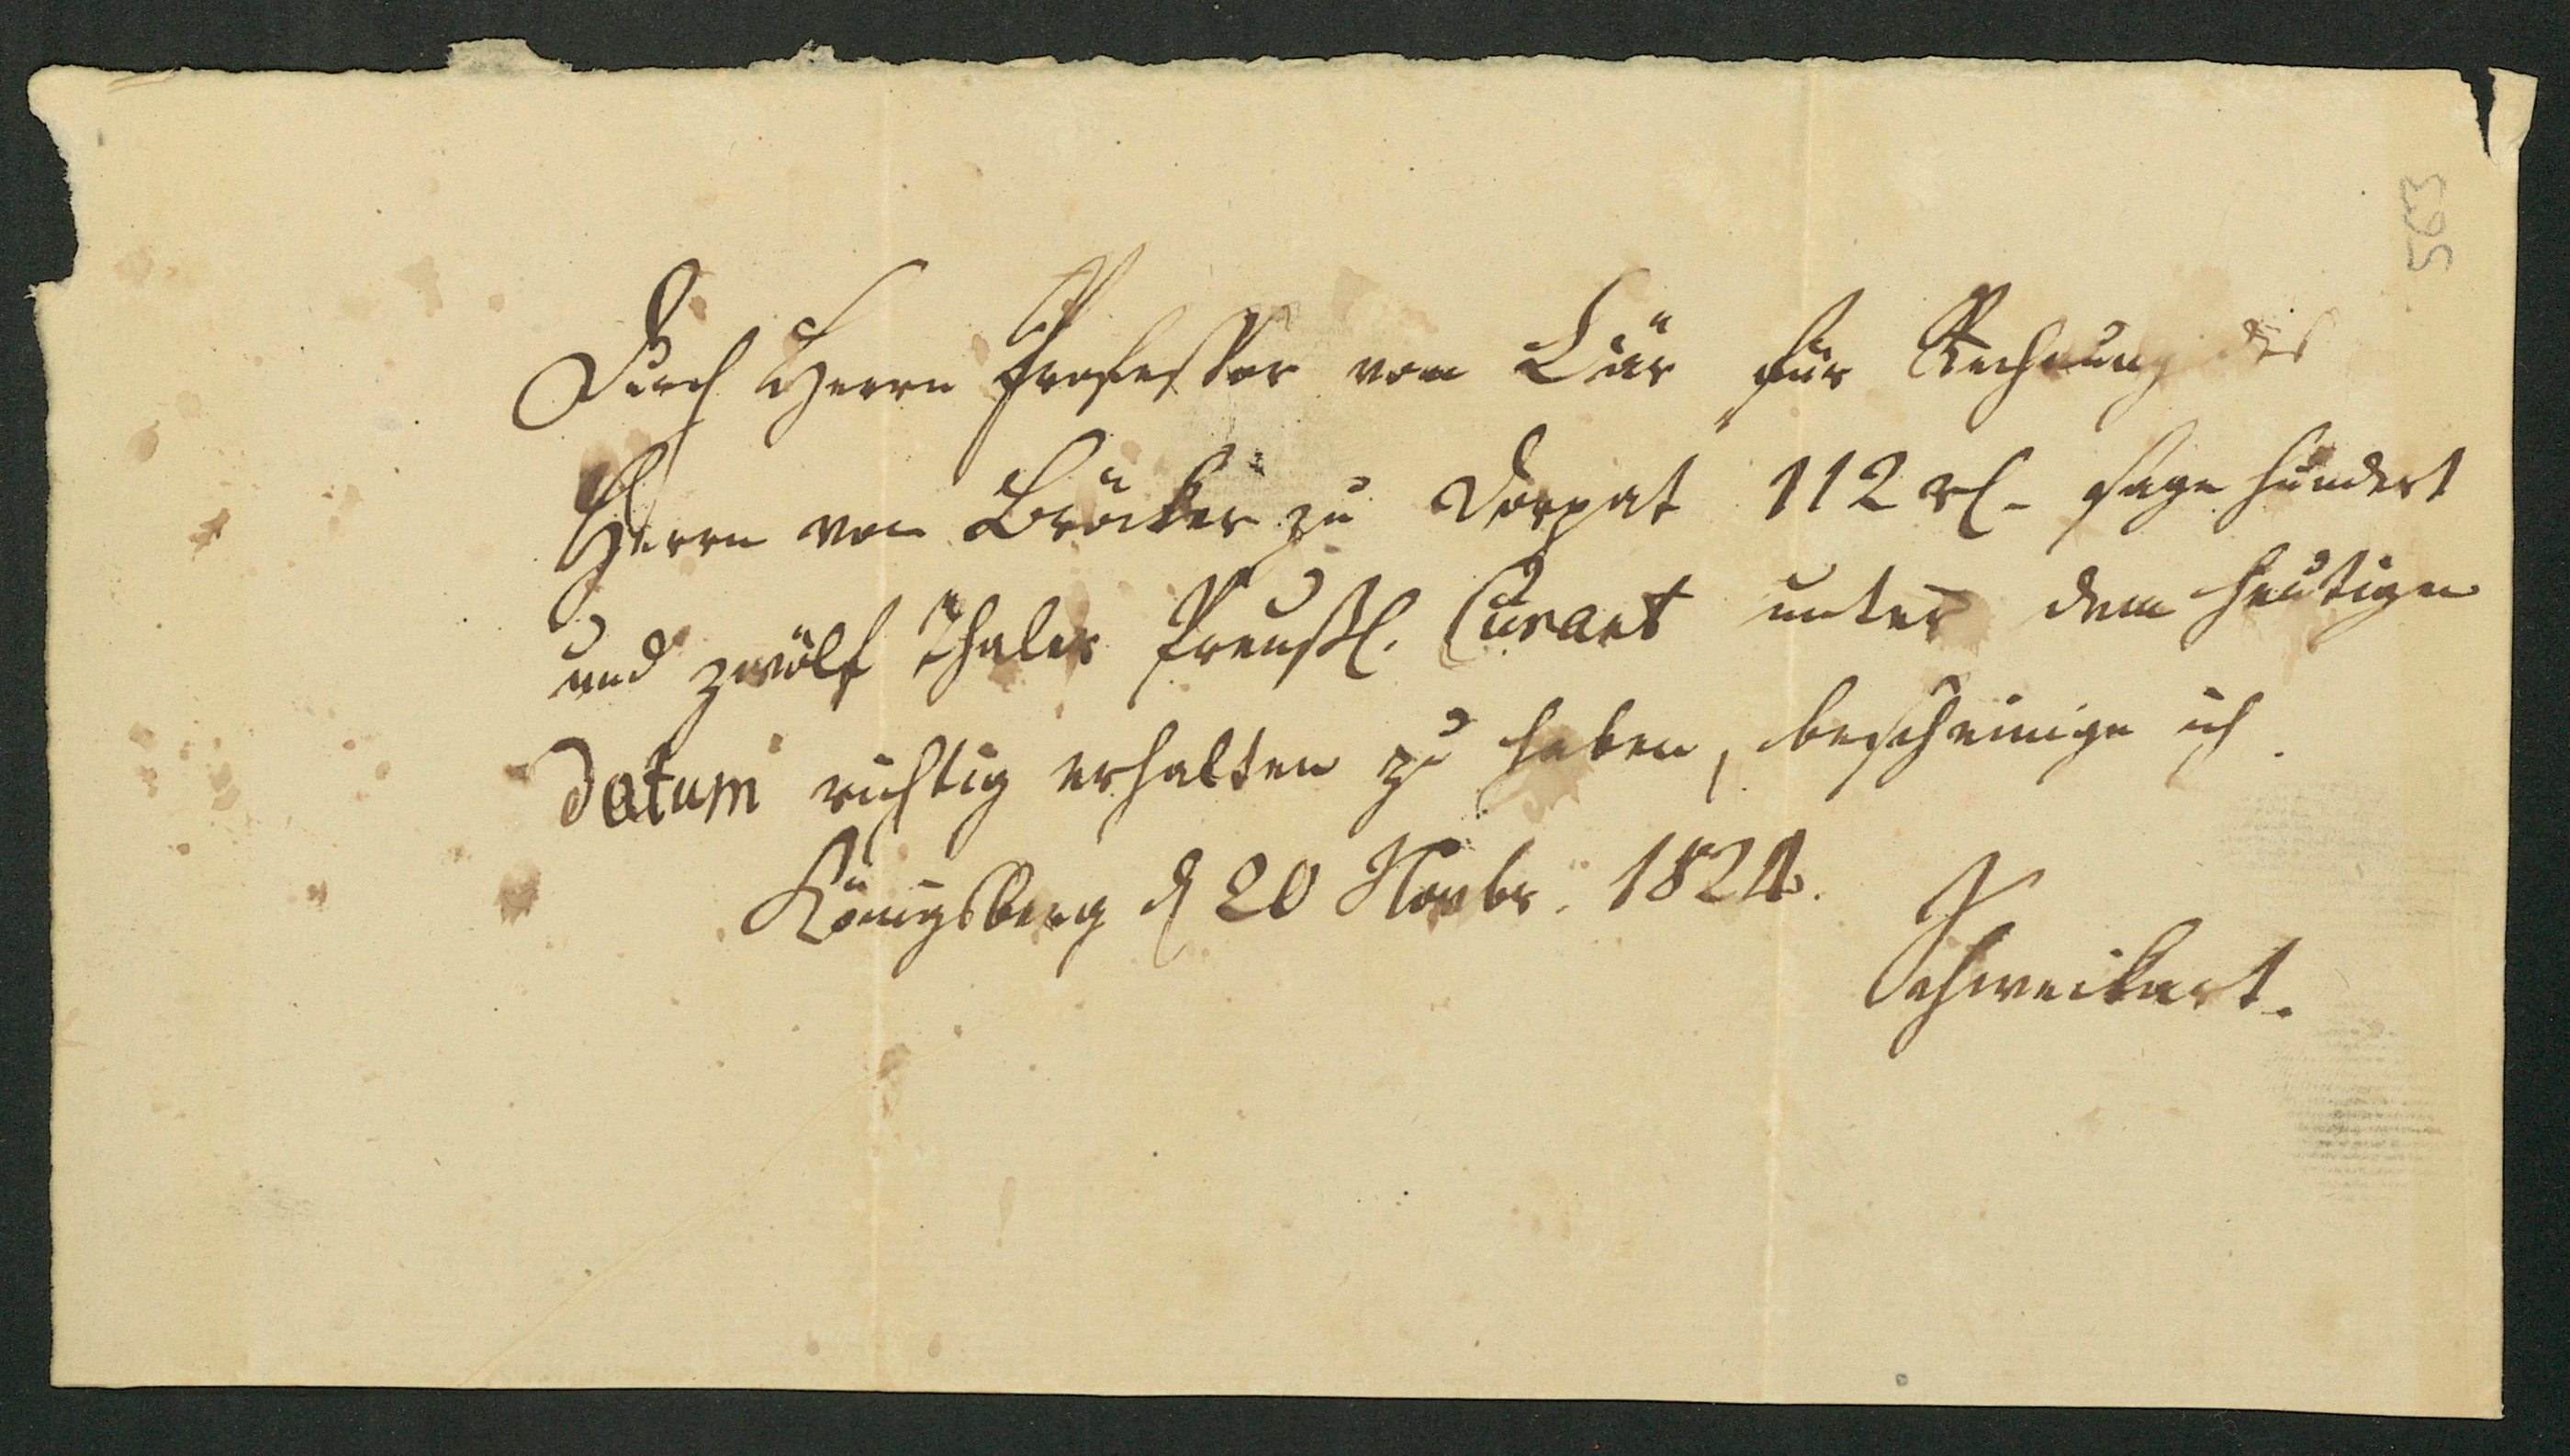 5663
Durch Herrn Professor von Bär für Rechnung des
Herrn von Bröcker zu Dorpat 112 rl. sage hundert
und zwölf Thaler Preußl. Curant unter dem heutigen
Datum richtig erhalten zu haben, bescheinige ich.
Königsberg d 20 Novbr. 1821.
Schweikart.